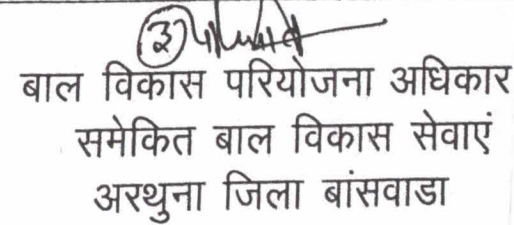 बाल विकास परियोजना अधिकार
समेकित बाल विकास सेवाएं
अरथुना जिला बांसवाडा